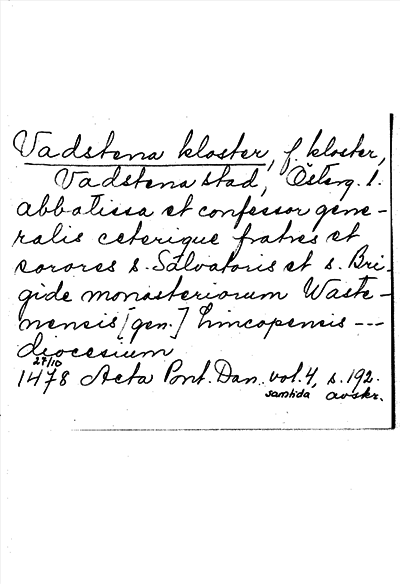 Vadstena kloster, f. kloster,
Vadstena stad, Österg. l.
abbatissa et confessor gene-
ralis ceterique fratres et
sorores s. Salvatoris et s. Bri-
gide monasteriorum Waste-
nensis [gen.] Lincopensis ---
diocesium
27/10
1478 Acta Pont. Dan. vol. 4, s. 192.
samtida avskr.